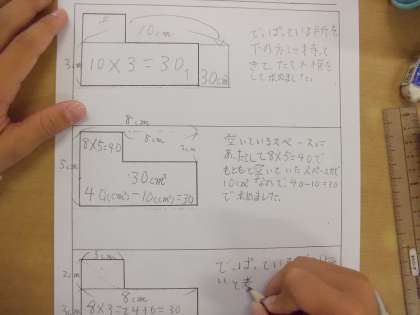 10cm
3cm
10×3=30
30cm²
でっぱている所を
下の方に持て
きて、たて×横を
して求めました。
8cm
8cm
2cm
5cm
8×5=40
30cm²
40(cm²)-10(cm²)=30
空いているスペースに
あったとして8×5=40で
もともと空いていたスペースが
10cm²なので、40-10=30
で求めました。
3cm
2cm
8cm
3cm
8×3=24+6=30
でっぱている
いと考